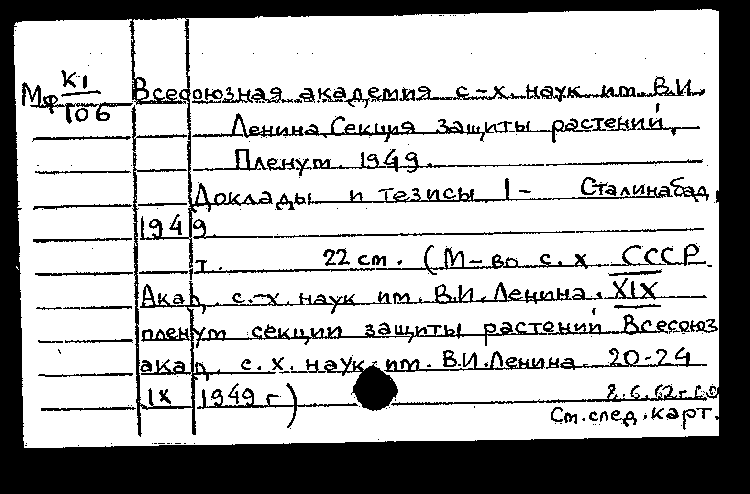 Мф К1/106 Всесоюзная академия с-х. наук им. В.И.
Ленина. Секция защиты растений.
Пленум. 1949.
Доклады и тезисы 1- Сталинабад,
1949.
т. 22 см. (М-во с. х СССР
Акад. с.-х. наук им. В.И. Ленина. XIX
пленум секции защиты растений Всесоюз
акад. с. х. наук им. В.И. Ленина 20-24
IX 1949 г)
См. след. карт.